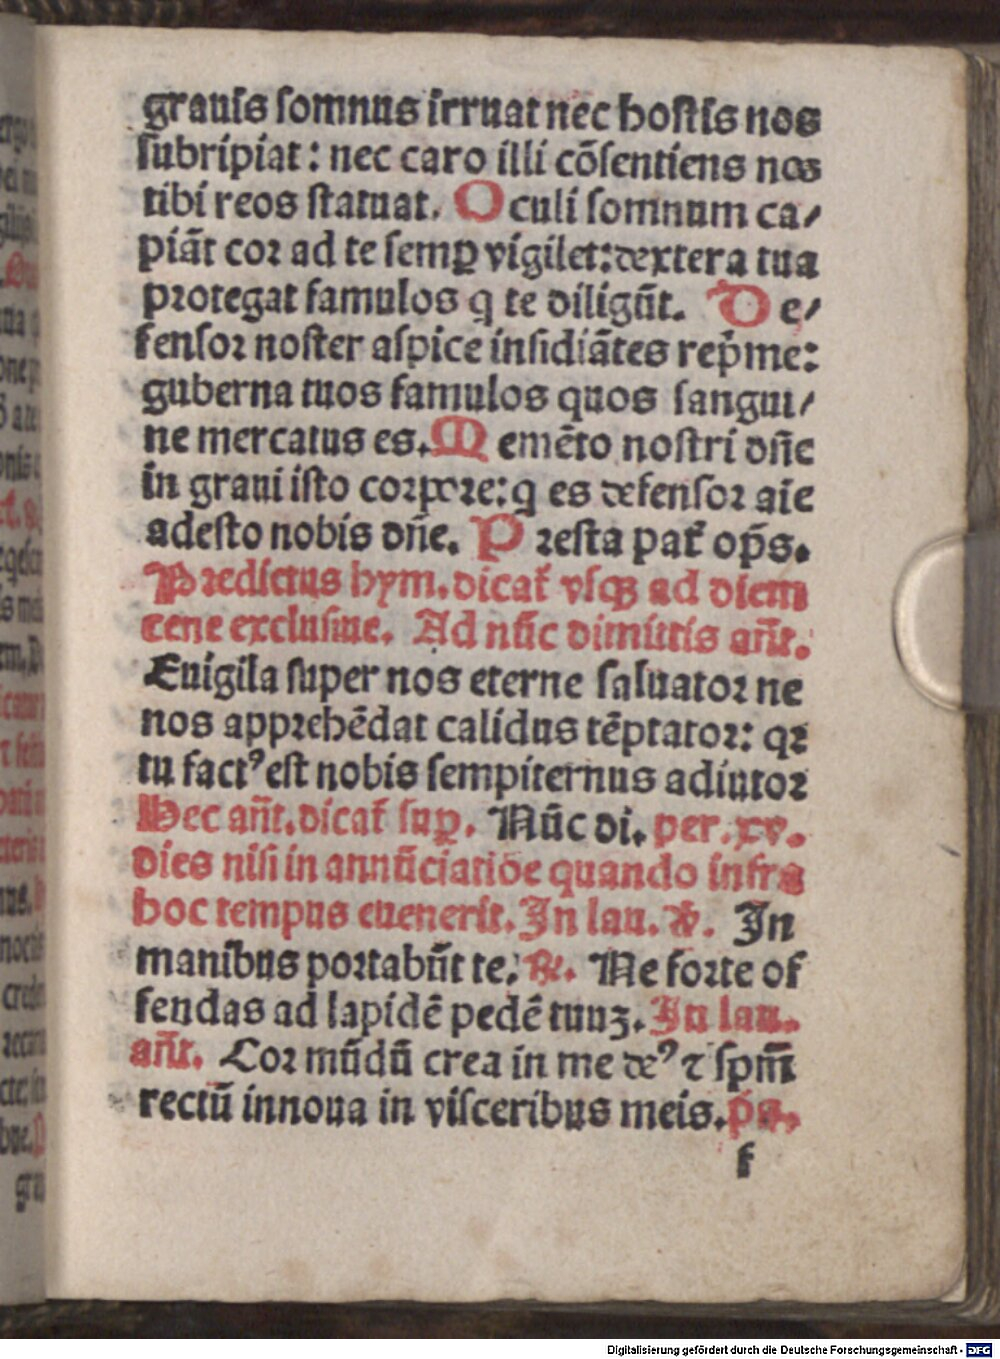 grauis somnus irruat nec hostis nos
subripiat: nec caro illi cōsentiens nos
tibi reos statuat. Oculi somnum ca/
piāt cor ad te semꝑ vigilet: dextera tua
protegat famulos q te diligūt. De/
fensor noster aspice insidiātes rep̄me:
guberna tuos famulos quos sangui/
ne mercatus es. Memēto nostri dn̄e
in graui isto corpore: q es defensor aīe
adesto nobis dn̄e. Presta pat̄ op̄s.
Predictus hym. dicat̄ vsqꝫ ad diem
cene exclusiue. Ad nūc dimittis an̄t.
Euigila super nos eterne saluator ne
nos apprehēdat calidus tēptator: qꝛ
tu factꝰ est nobis sempiternus adiutor
Hec an̄t. dicat̄ suꝑ. Nūc di. per. xv.
dies nisi in annūciatiōe quando infra
hoc tempus euenerit. In lau. ℣. In
manibus portabūt te. ℟. Ne forte of
fendas ad lapidē pedē tuuꝫ. In lau.
an̄t. Cor mūdū crea in me deꝰ ⁊ spm̄
rectū innoua in visceribus meis. p̄s.
f
Digitalisierung gefördert durch die Deutsche Forschungsgemeinschaft - DFG